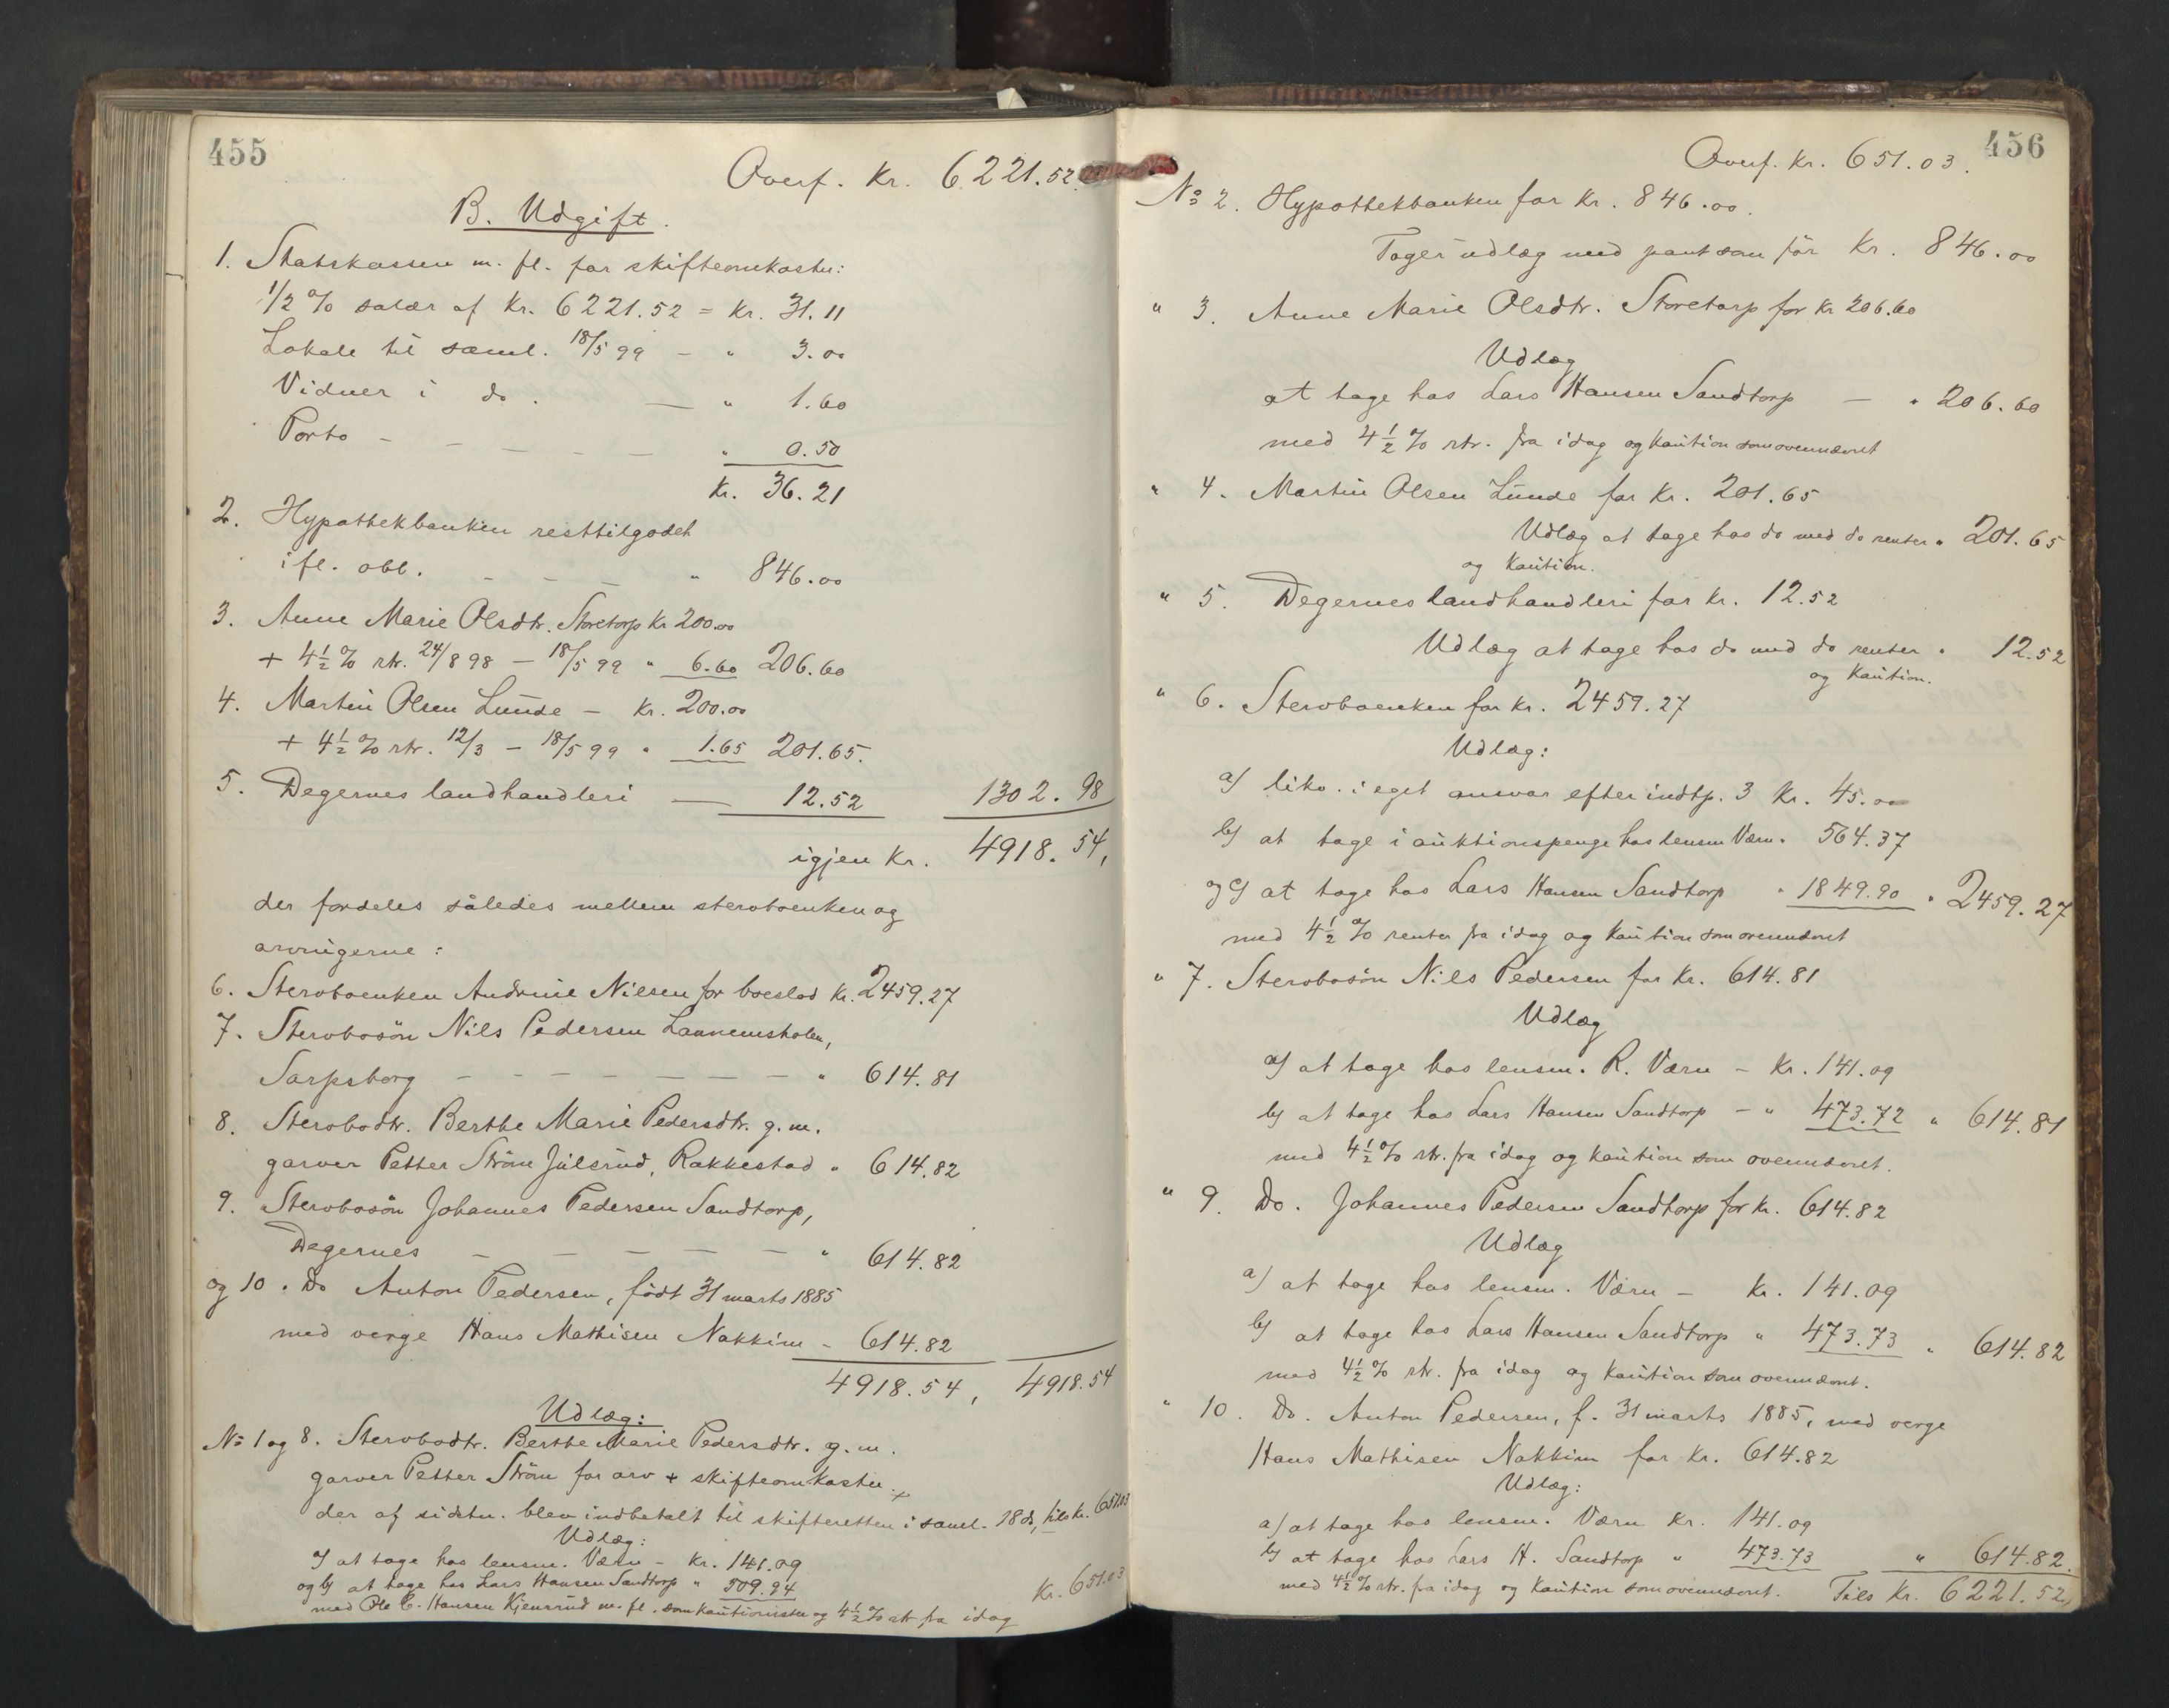 455
Overf. Kr. 6221.52
B. Udgift.
1. Statskassen m. fl. for skifteomkostn:
1/2 % salær af Kr. 6221.52 = Kr. 31.11
Lokale til saml. 18/5 99 - " 3.00
Vidner i do. — " 1.60
Porto - - - - — " 0.50
Kr. 36.21
2. Hypothekbanken resttilgodeh
ifl. obl. - - - " 846.00
3. Anne Marie Olsdtr. Storetorp Kr 200.00
+ 4 1/2 % rtr. 24/8 98 - 18/5 99 " 6.60 206.60
4. Martin Olsen Lunde - Kr. 200.00
+ 4 1/2 % rtr. 12/3 - 18/5 99 " 1.65 201.65.
5. Degernes landhandleri — 12.52 1302.98
igjen Kr. 4918.54,
der fordeles således mellem stervboenken og
arvingerne:
6. Stervboenken Andrine Nilsen for boeslod Kr. 2459.27
7. Stervbosön Nils Pedersen Lannemsholen,
Sarpsborg - - - - - - - " 614.81
8. Stervbodtr. Berthe Marie Pedersdtr. g. m.
garver Petter Ström Julsrud, Rakkestad " 614.82
9. Stervbosön Johannes Pedersen Sandtorp,
Degernes - - - - - " 614.82
og 10. Do Anton Pedersen, födt 31 marts 1885
med verge Hans Mathisen Nakkim - 614.82
4918.54, 4918.54
Udlæg:
No 1 og 8. Stervbodtr. Berthe Marie Pedersdtr. g. m.
garver Petter Ström for arv + skifteomkostn.
der af sidstn. blev indbetalt til skifteretten i saml. 18 ds, tils Kr. 651.03
Udlæg:
a) at tage hos lensm. Værn - Kr. 141.09
og b) at tage hos Lars Hansen Sandtorp " 509.94 Kr. 651.03
med Ole C. Hansen Kjensrud m. fl. som kautionister og 4 1/2 % rtr fra idag
456
Overf. Kr. 651.03.
No 2. Hypothekbanken for Kr. 846.00.
Tager udlæg med pant som för Kr. 846.00
" 3. Anne Marie Olsdtr. Storetorp for Kr 206.60
Udlæg
at tage hos Lars Hansen Sandtorp — " 206.60
med 4 1/2 % rtr. fra idag og kaution som ovennævnt
" 4. Martin Olsen Lunde for Kr. 201.65
Udlæg at tage hos do med do renter " 201.65
og kaution.
" 5. Degernes landhandleri for Kr. 12.52
Udlæg at tage hos do med do renter " 12.52
og kaution.
" 6. Stervboenken for Kr. 2459.27
Udlæg:
a) liko. i eget ansvar efter indtp. 3 Kr. 45.00
b) at tage i auktionspenge hos lensm Værn " 564.37
og c) at tage hos Lars Hansen Sandtorp " 1849.90 " 2459.27
med 4 1/2 % renter fra idag og kaution som ovennævnt
" 7. Stervbosön Nils Pedersen for Kr. 614.81
Udlæg
a) at tage hos lensm. R. Værn - Kr. 141.09
b) at tage hos Lars Hansen Sandtorp - " 473.72 " 614.81
med 4 1/2 % rtr. fra idag og kaution som ovennævnt.
" 9. Do. Johannes Pedersen Sandtorp for Kr. 614.82
Udlæg
a) at tage hos lensm. Værn - Kr. 141.09
b) at tage hos Lars Hansen Sandtorp " 473.73 " 614.82
med 4 1/2 % rtr. fra idag og kaution som ovennævnt.
" 10. Do. Anton Pedersen, f. 31 marts 1885, med verge
Hans Mathisen Nakkim for Kr. 614.82
Udlæg:
a) at tage hos lensm. Værn Kr. 141.09
b) at tage hos Lars H. Sandtorp " 473.73 " 614.82.
med 4 1/2 % rtr. fra idag og kaution som ovennævnt. Tils Kr. 6221.52,